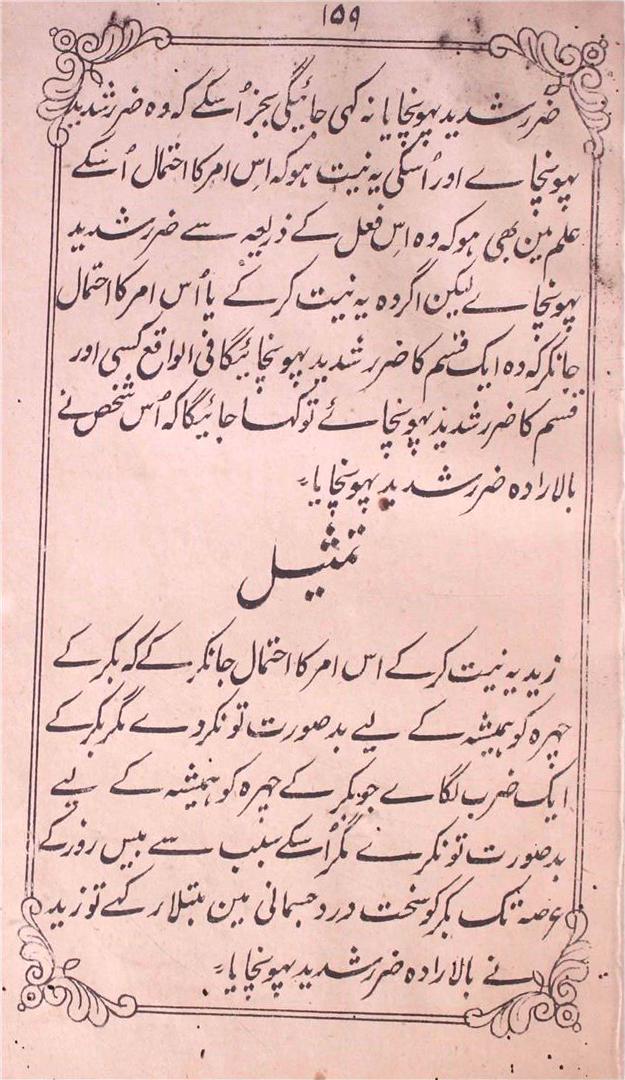 ۱۵۹
ضرر شدید پہونچایا نہ کہی جائیگی بجز اُسکے کہ وہ ضرر شدید
پہونچاے اور اُسکی یہ نیت ہو کہ اِس امر کا احتمال اُسکے
علم مین بھی ہو کہ وہ اِس فعل کے ذریعہ سے ضرر شدید
پہونچاے لیکن اگر وہ یہ نیت کر کے یا اُس امر کا احتمال
جانکر کہ وہ ایک قسم کا ضرر شدید پہونچائیگا فی الواقع کسی اور
قسم کا ضرر شدید پہونچائے تو کہا جائیگا کہ اُس شخص نے
بالارادہ ضرر شدید پہونچایا۔
تمثیل
زید یہ نیت کر کے اس امر کا احتمال جانکر کے کہ بکر کے
چہرہ کو ہمیشہ کے لیے بد صورت تو نکردے مگر بکر کے
ایک ضرب لگاے جو بکر کے چہرہ کو ہمیشہ کے لیے
بد صورت تو نکرے مگر اُسکے سبب سے بیس روز کے
عرصہ تک بکر کو سخت درد جسمانی مین مبتلا رکھے تو زید
نے بالارادہ ضرر شدید پہونچایا۔